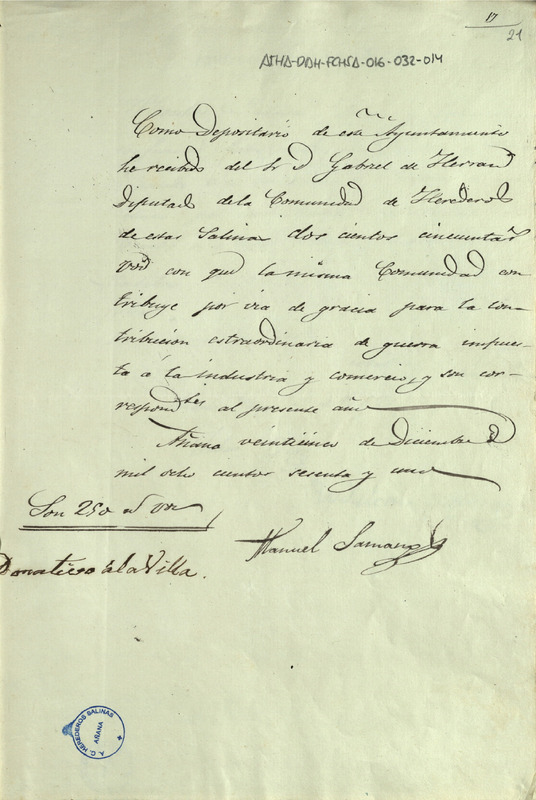 17
21
ATHA-DAH-FCHSA-016-032-014
Como Depositario de este Ayuntamiento
he recibido del Sr D Gabriel de Herran
Diputado de la Comunidad de Herederos
de estas Salinas dos cientos cincuenta r.s
von con que la misma Comunidad con-
tribuye por via de gracia para la con-
tribucion estraordinaria de guerra impues-
ta á la industria y comercio, y son cor-
respond.tes al presente año
Añana veinticinco de Diciembre de
mil ocho cientos sesenta y uno
Son 250 rs von
Manuel Samaniego
Donativo á la Villa.
A. C. HEREDEROS SALINAS
AÑANA